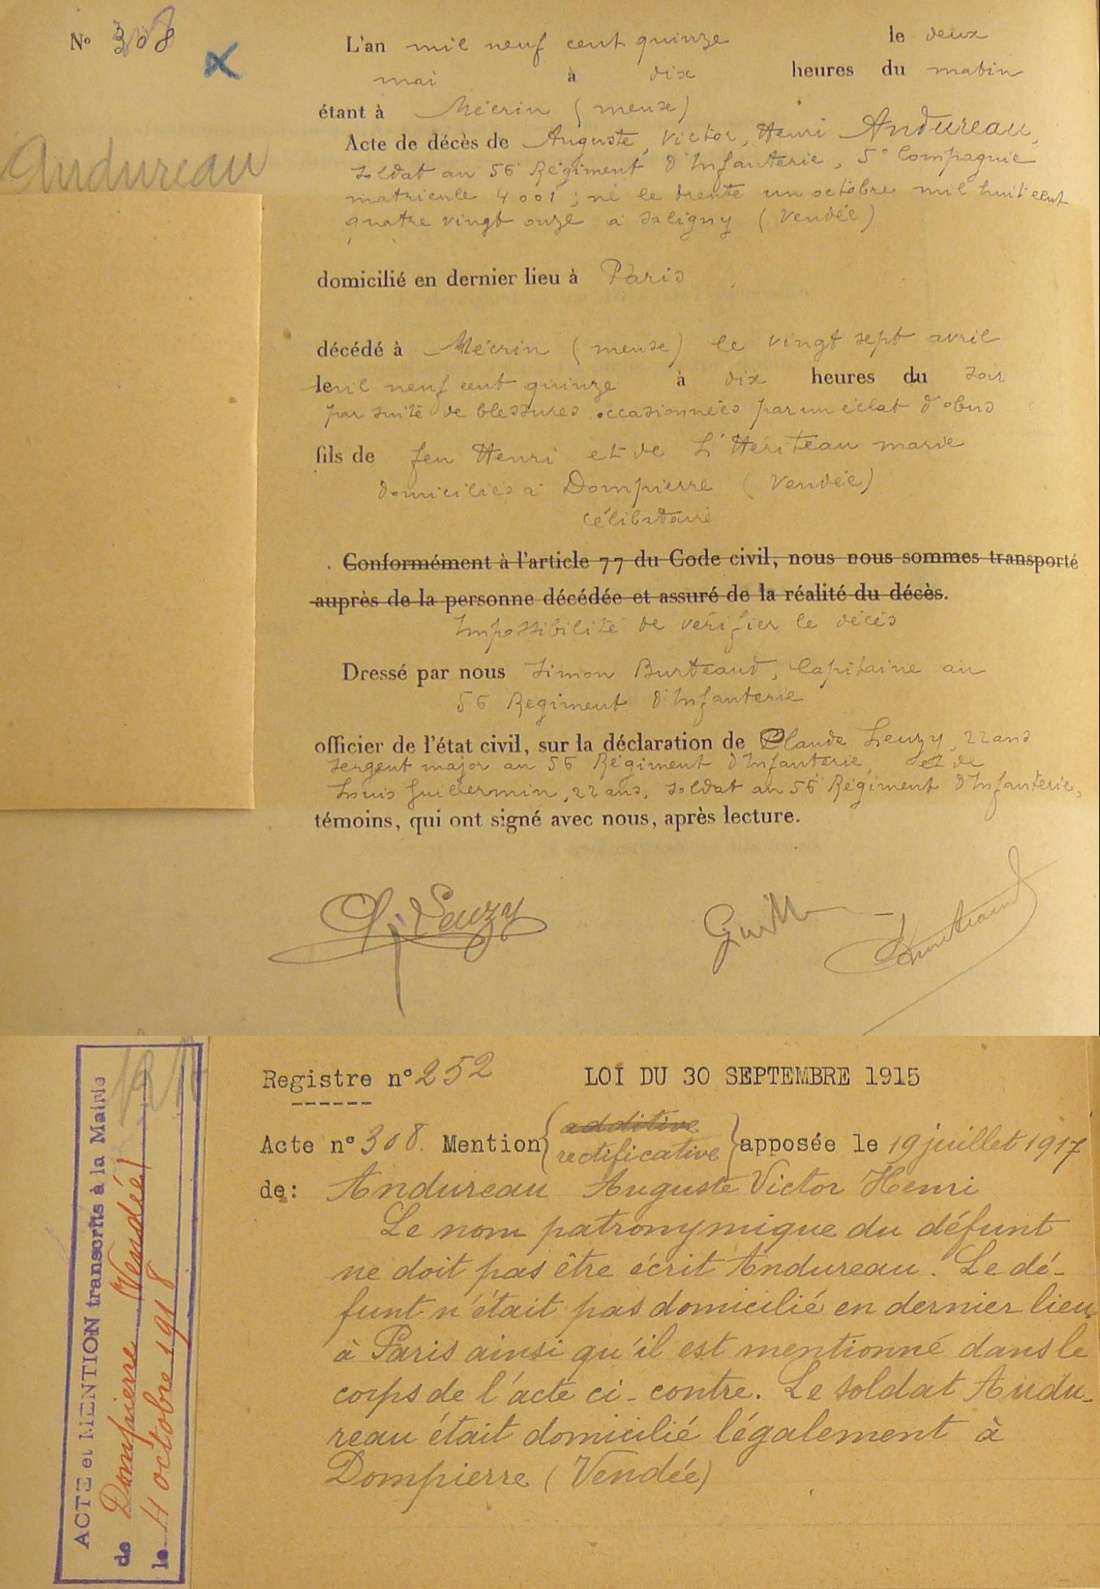 N° 308
L'an mil neuf cent quinze le deux
mai à dix heures du matin
étant à Mécrin (meuse)
Acte de décès de Auguste, Victor, Henri Andureau,
soldat au 56e Régiment d'Infanterie, 5e Compagnie
matricule 4001; né le trente un octobre mil huit cent
quatre vingt onze à Saligny (Vendée)
Andureau
domicilié en dernier lieu à Paris
décédé à Mécrin (meuse) le vingt sept avril
le mil neuf cent quinze à dix heures du soir
par suite de blessures occasionnées par un éclat d'obus
fils de feu Henri et de L'Hériteau marie
domiciliés à Dompierre (Vendée)
célibataire
Conformément à l'article 77 du Code civil, nous nous sommes transporté
auprès de la personne décédée et assuré de la réalité du décès.
Impossibilité de vérifier le décès
Dressé par nous Simon Burteaud, Capitaine au
56 Régiment d'Infanterie
officier de l'état civil, sur la déclaration de Claude Leuzy, 22 ans
sergent major au 56 Régiment d'Infanterie, et de
Louis Guillermin, 22 ans, soldat au 56e Régiment d'Infanterie,
témoins, qui ont signé avec nous, après lecture.
Cl. Leuzy
Registre n° 252 LOI DU 30 SEPTEMBRE 1915
Acte n° 308. Mention { additive rectificative } apposée le 19 juillet 1917
de: Andureau Auguste Victor Henri
Le nom patronymique du défunt
ne doit pas être écrit Andureau. Le dé-
funt n'était pas domicilié en dernier lieu
à Paris ainsi qu'il est mentionné dans le
corps de l'acte ci-contre. Le soldat Audu-
reau était domicilié légalement à
Dompierre (Vendée)
ACTE et MENTION transcrits à la Mairie
de Dompierre (Vendée)
le 4 octobre 1918